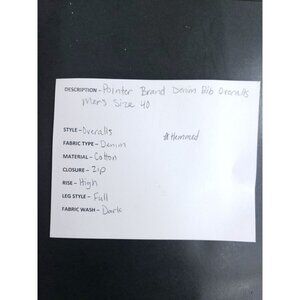 DESCRIPTION - Pointer Brand Denim Bib Overalls
Mens Size 40
STYLE - Overalls
#Hemmed
FABRIC TYPE - Denim
MATERIAL - Cotton
CLOSURE - Zip
RISE - High
LEG STYLE - Full
FABRIC WASH - Dark